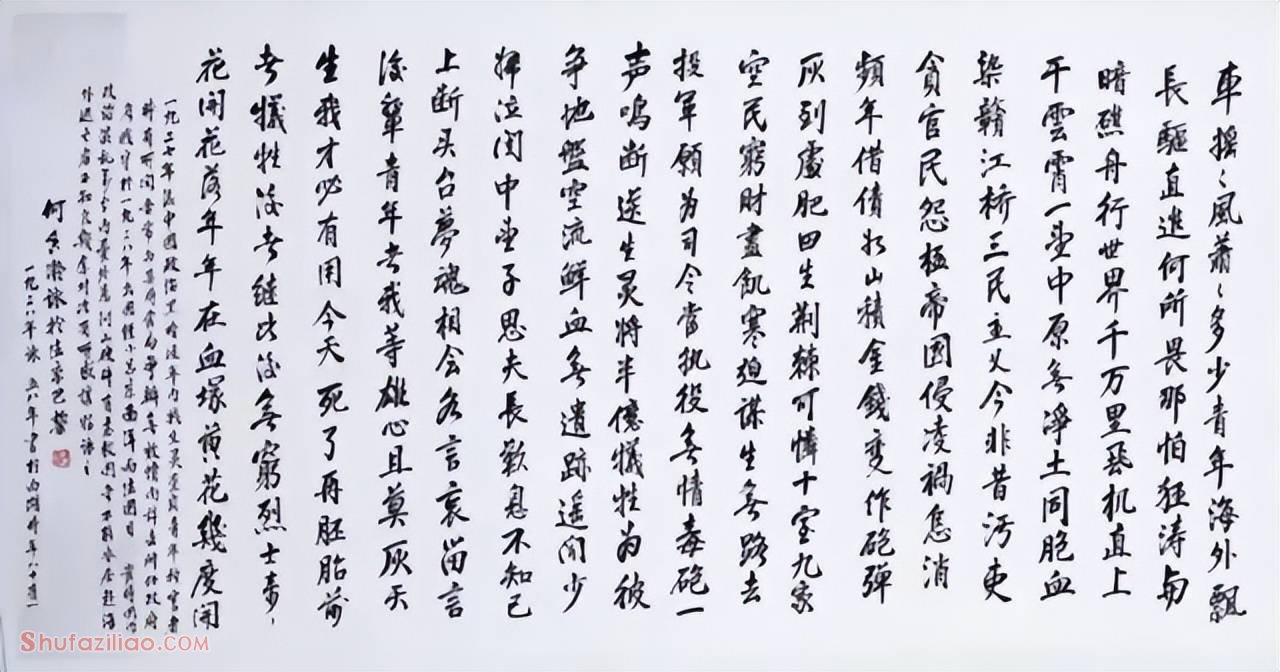 車摇々風蕭々多少青年海外飄
長驅直進何所畏那怕狂涛与
暗礁舟行世界千万里飛机直上
干雲霄一望中原無净土同胞血
染贛江桥三民主义今非昔污吏
貪官民怨極帝国侵凌禍急消
頻年借债如山積金錢变作砲弹
灰到處肥田生荆棘可憐十室九家
空民窮財盡飢寒迫謀生無路去
投軍願为司令當执役無情毒砲一
声鳴断送生灵将半億犧牲为彼
争地盤空流鮮血無遺跡遥闻少
婦泣闺中望子思夫長歎息不知已
上断头台夢魂相会各言哀留言
後輩青年者我等雄心且莫灰天
生我才必有用今天死了再胚胎前
者犧牲後者继此後無窮烈士来々
花開花落年年在血塚黄花幾度開
一九二七年
於一九二八年出国經小呂宋西洋而法國
何香凝詠於法京巴黎
一九二八年詠 五八年書於西湖時年八十有一
Shufaziliao.COM